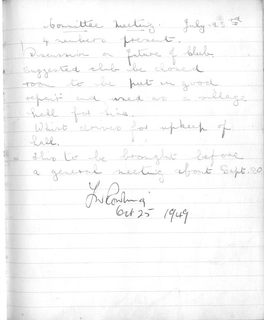 Committee Meeting. July 22nd
4 members present.
Discussion on future of Club.
Suggested club be closed
room to be put in good
repair and used as a village
hall for hire.
Whist drives for upkeep of
hall.
This to be brought before
a general meeting about Sept. 20
Oct 25 1949